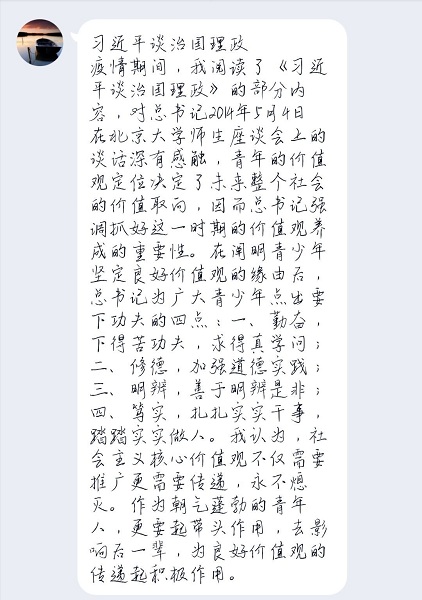 习近平谈治国理政
疫情期间，我阅读了《习近
平谈治国理政》的部分内
容，对总书记2014年5月4日
在北京大学师生座谈会上的
谈话深有感触，青年的价值
观定位决定了未来整个社会
的价值取向，因而总书记强
调抓好这一时期的价值观养
成的重要性。在阐明青少年
坚定良好价值观的缘由后，
总书记为广大青少年点出要
下功夫的四点：一、勤奋，
下得苦功夫，求得真学问；
二、修德，加强道德实践；
三、明辨，善于明辨是非；
四、笃实，扎扎实实干事，
踏踏实实做人。我认为，社
会主义核心价值观不仅需要
推广更需要传递，永不熄
灭。作为朝气蓬勃的青年
人，更要起带头作用，去影
响后一辈，为良好价值观的
传递起积极作用。